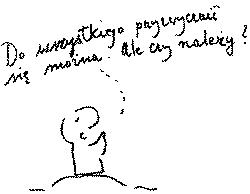 Do wszystkiego przyzwyczaić
się można. Ale czy należy?